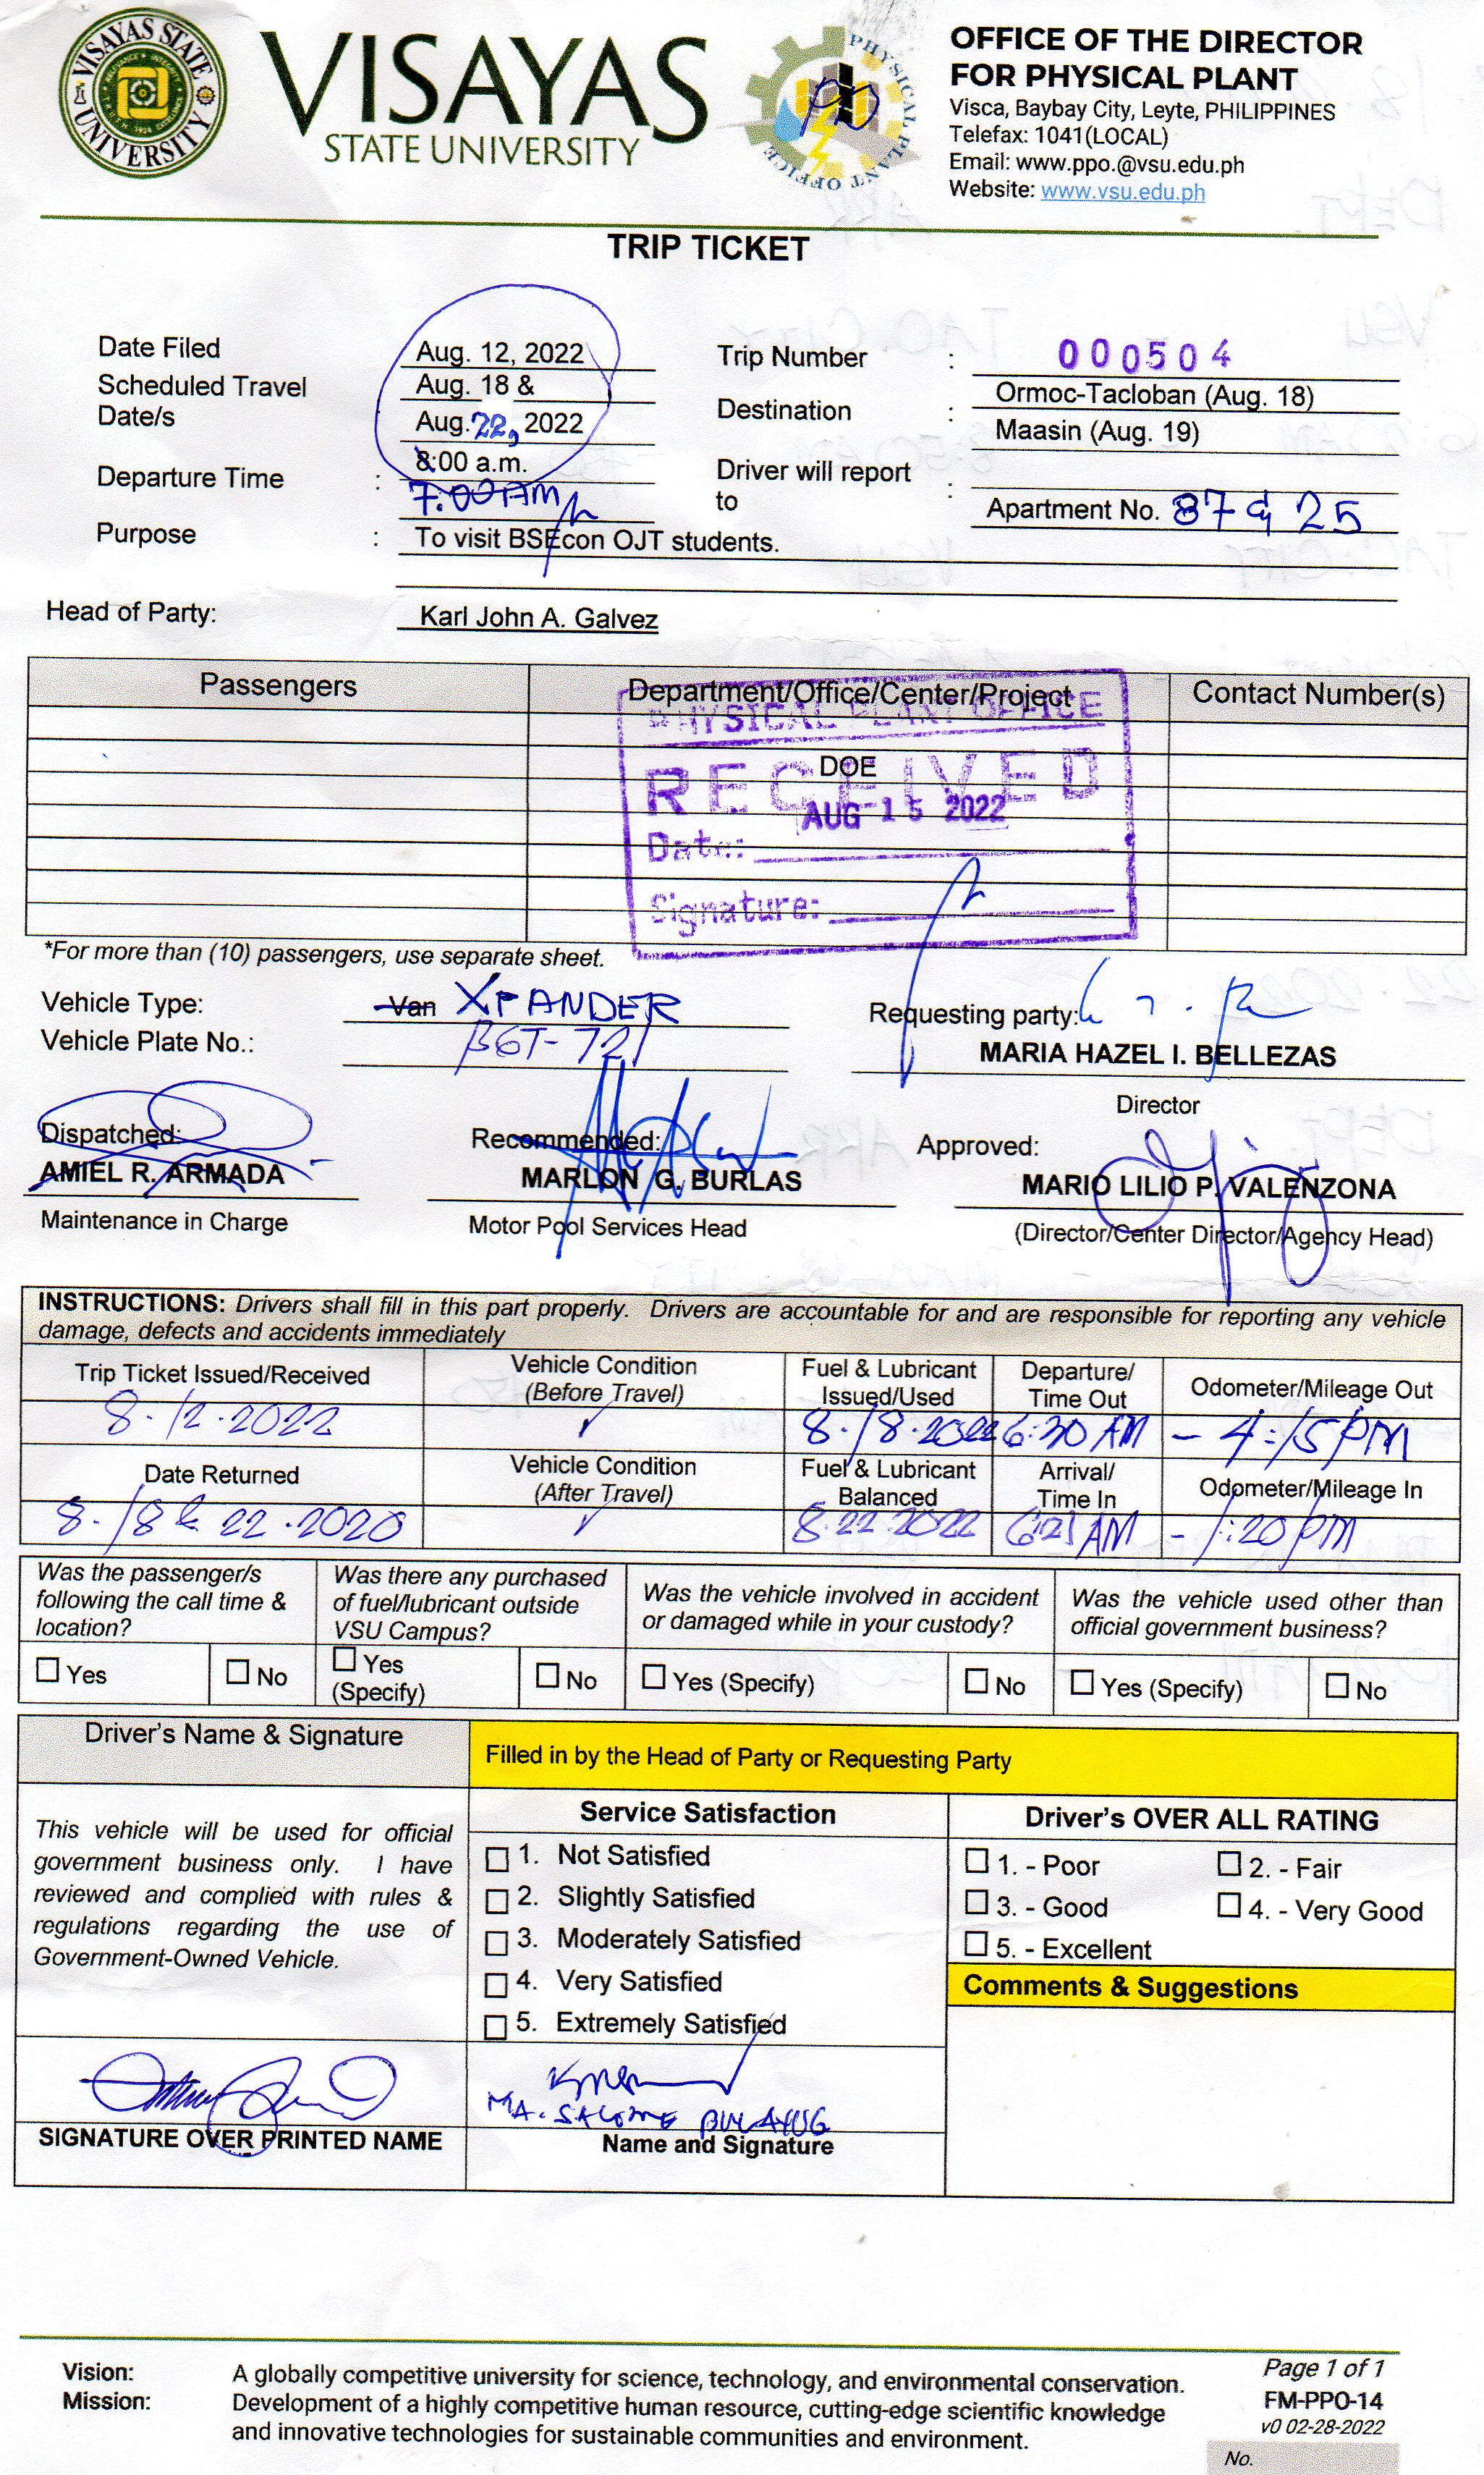 VISAYAS STATE UNIVERSITY
VISAYAS
STATE UNIVERSITY
PHYSICAL PLANT OFFICE
OFFICE OF THE DIRECTOR
FOR PHYSICAL PLANT
Visca, Baybay City, Leyte, PHILIPPINES
Telefax: 1041(LOCAL)
Email: www.ppo.@vsu.edu.ph
Website: www.vsu.edu.ph
TRIP TICKET
Date Filed Aug. 12, 2022 Trip Number : 000504
Scheduled Travel Aug. 18 & Ormoc-Tacloban (Aug. 18)
Date/s Aug. 22, 2022 Destination : Maasin (Aug. 19)
8:00 a.m.
Departure Time : 7:00 AM Driver will report to : Apartment No. 87 & 25
Purpose : To visit BSEcon OJT students.
Head of Party: Karl John A. Galvez
Passengers Department/Office/Center/Project Contact Number(s)
PHYSICAL PLANT OFFICE
DOE
RECEIVED
AUG 15 2022
Date:
Signature:
*For more than (10) passengers, use separate sheet.
Vehicle Type: Van XPANDER Requesting party:
Vehicle Plate No.: B6T-721 MARIA HAZEL I. BELLEZAS
Director
Dispatched: Recommended: Approved:
AMIEL R. ARMADA MARLON G. BURLAS MARIO LILIO P. VALENZONA
Maintenance in Charge Motor Pool Services Head (Director/Center Director/Agency Head)
INSTRUCTIONS: Drivers shall fill in this part properly. Drivers are accountable for and are responsible for reporting any vehicle
damage, defects and accidents immediately
Trip Ticket Issued/Received Vehicle Condition (Before Travel) Fuel & Lubricant Issued/Used Departure/ Time Out Odometer/Mileage Out
8.12.2022 ✓ 8.18.2022 6:30 AM - 4:15 PM
Date Returned Vehicle Condition (After Travel) Fuel & Lubricant Balanced Arrival/ Time In Odometer/Mileage In
8.18 & 22.2020 ✓ 8.22.2022 6:21 AM - 1:20 PM
Was the passenger/s following the call time & location?
Was there any purchased of fuel/lubricant outside VSU Campus?
Was the vehicle involved in accident or damaged while in your custody?
Was the vehicle used other than official government business?
☐ Yes ☐ No ☐ Yes (Specify) ☐ No ☐ Yes (Specify) ☐ No ☐ Yes (Specify) ☐ No
Driver's Name & Signature
Filled in by the Head of Party or Requesting Party
This vehicle will be used for official
government business only. I have
reviewed and complied with rules &
regulations regarding the use of
Government-Owned Vehicle.
Service Satisfaction
☐ 1. Not Satisfied
☐ 2. Slightly Satisfied
☐ 3. Moderately Satisfied
☐ 4. Very Satisfied
☐ 5. Extremely Satisfied
Driver's OVER ALL RATING
☐ 1. - Poor ☐ 2. - Fair
☐ 3. - Good ☐ 4. - Very Good
☐ 5. - Excellent
Comments & Suggestions
MA. SALOME BULAYOG
SIGNATURE OVER PRINTED NAME Name and Signature
Vision: A globally competitive university for science, technology, and environmental conservation.
Mission: Development of a highly competitive human resource, cutting-edge scientific knowledge
and innovative technologies for sustainable communities and environment.
Page 1 of 1
FM-PPO-14
v0 02-28-2022
No.